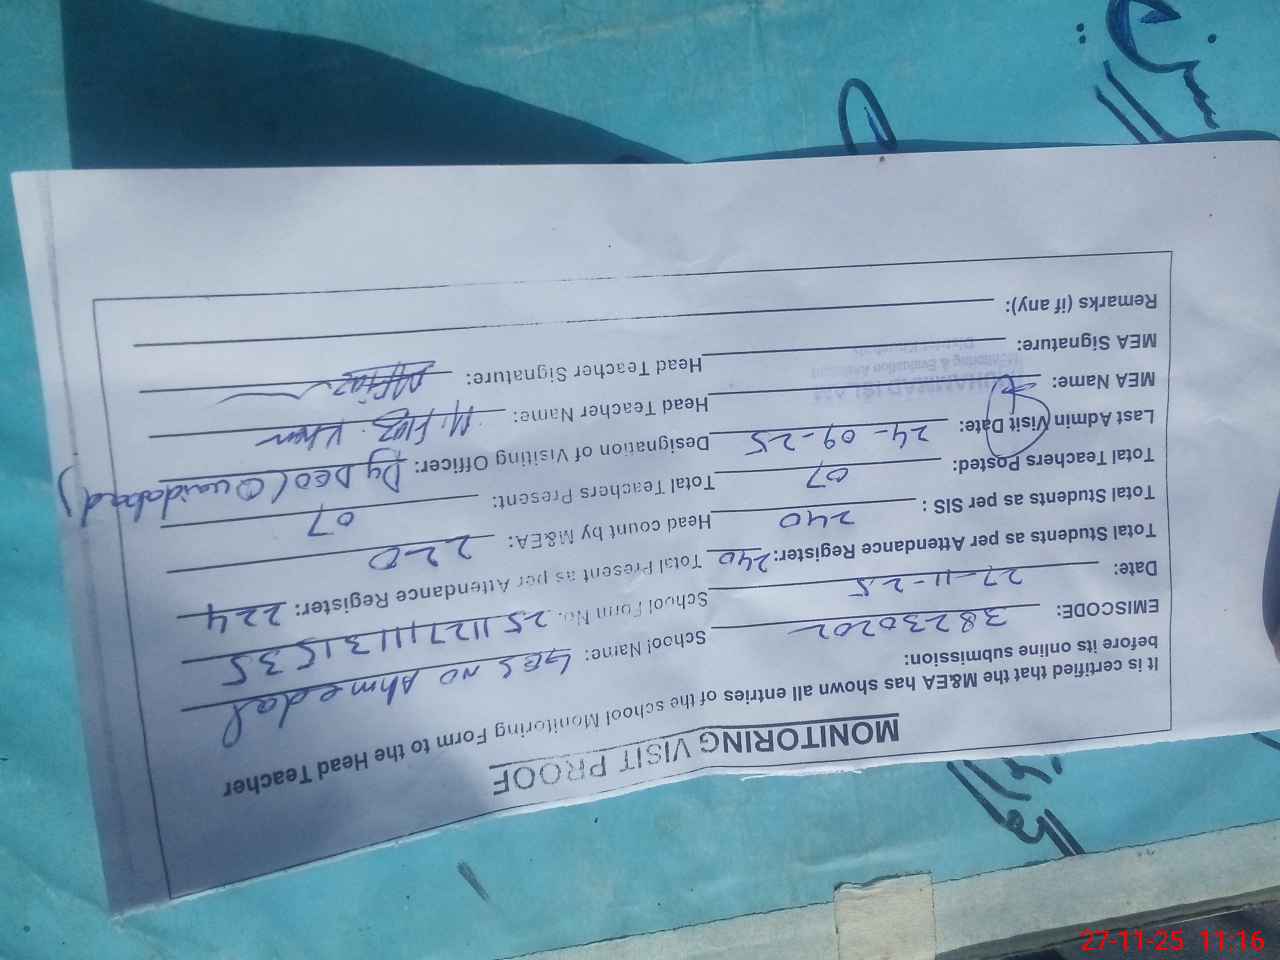 MONITORING VISIT PROOF
It is certified that the M&EA has shown all entries of the school Monitoring Form to the Head Teacher
before its online submission:
EMISCODE: 38230202 School Name: GES NO Ahmedal
Date: 27-11-25 School Form No. 25112711131535
Total Students as per Attendance Register: 240 Total Present as per Attendance Register: 224
Total Students as per SIS : 240 Head count by M&EA: 220
Total Teachers Posted: 07 Total Teachers Present: 07
Last Admin Visit Date: 24-09-25 Designation of Visiting Officer: Dy DEO (Quaidabad)
MEA Name: Head Teacher Name: Khan
MEA Signature: Head Teacher Signature:
Remarks (if any):
27-11-25 11:16